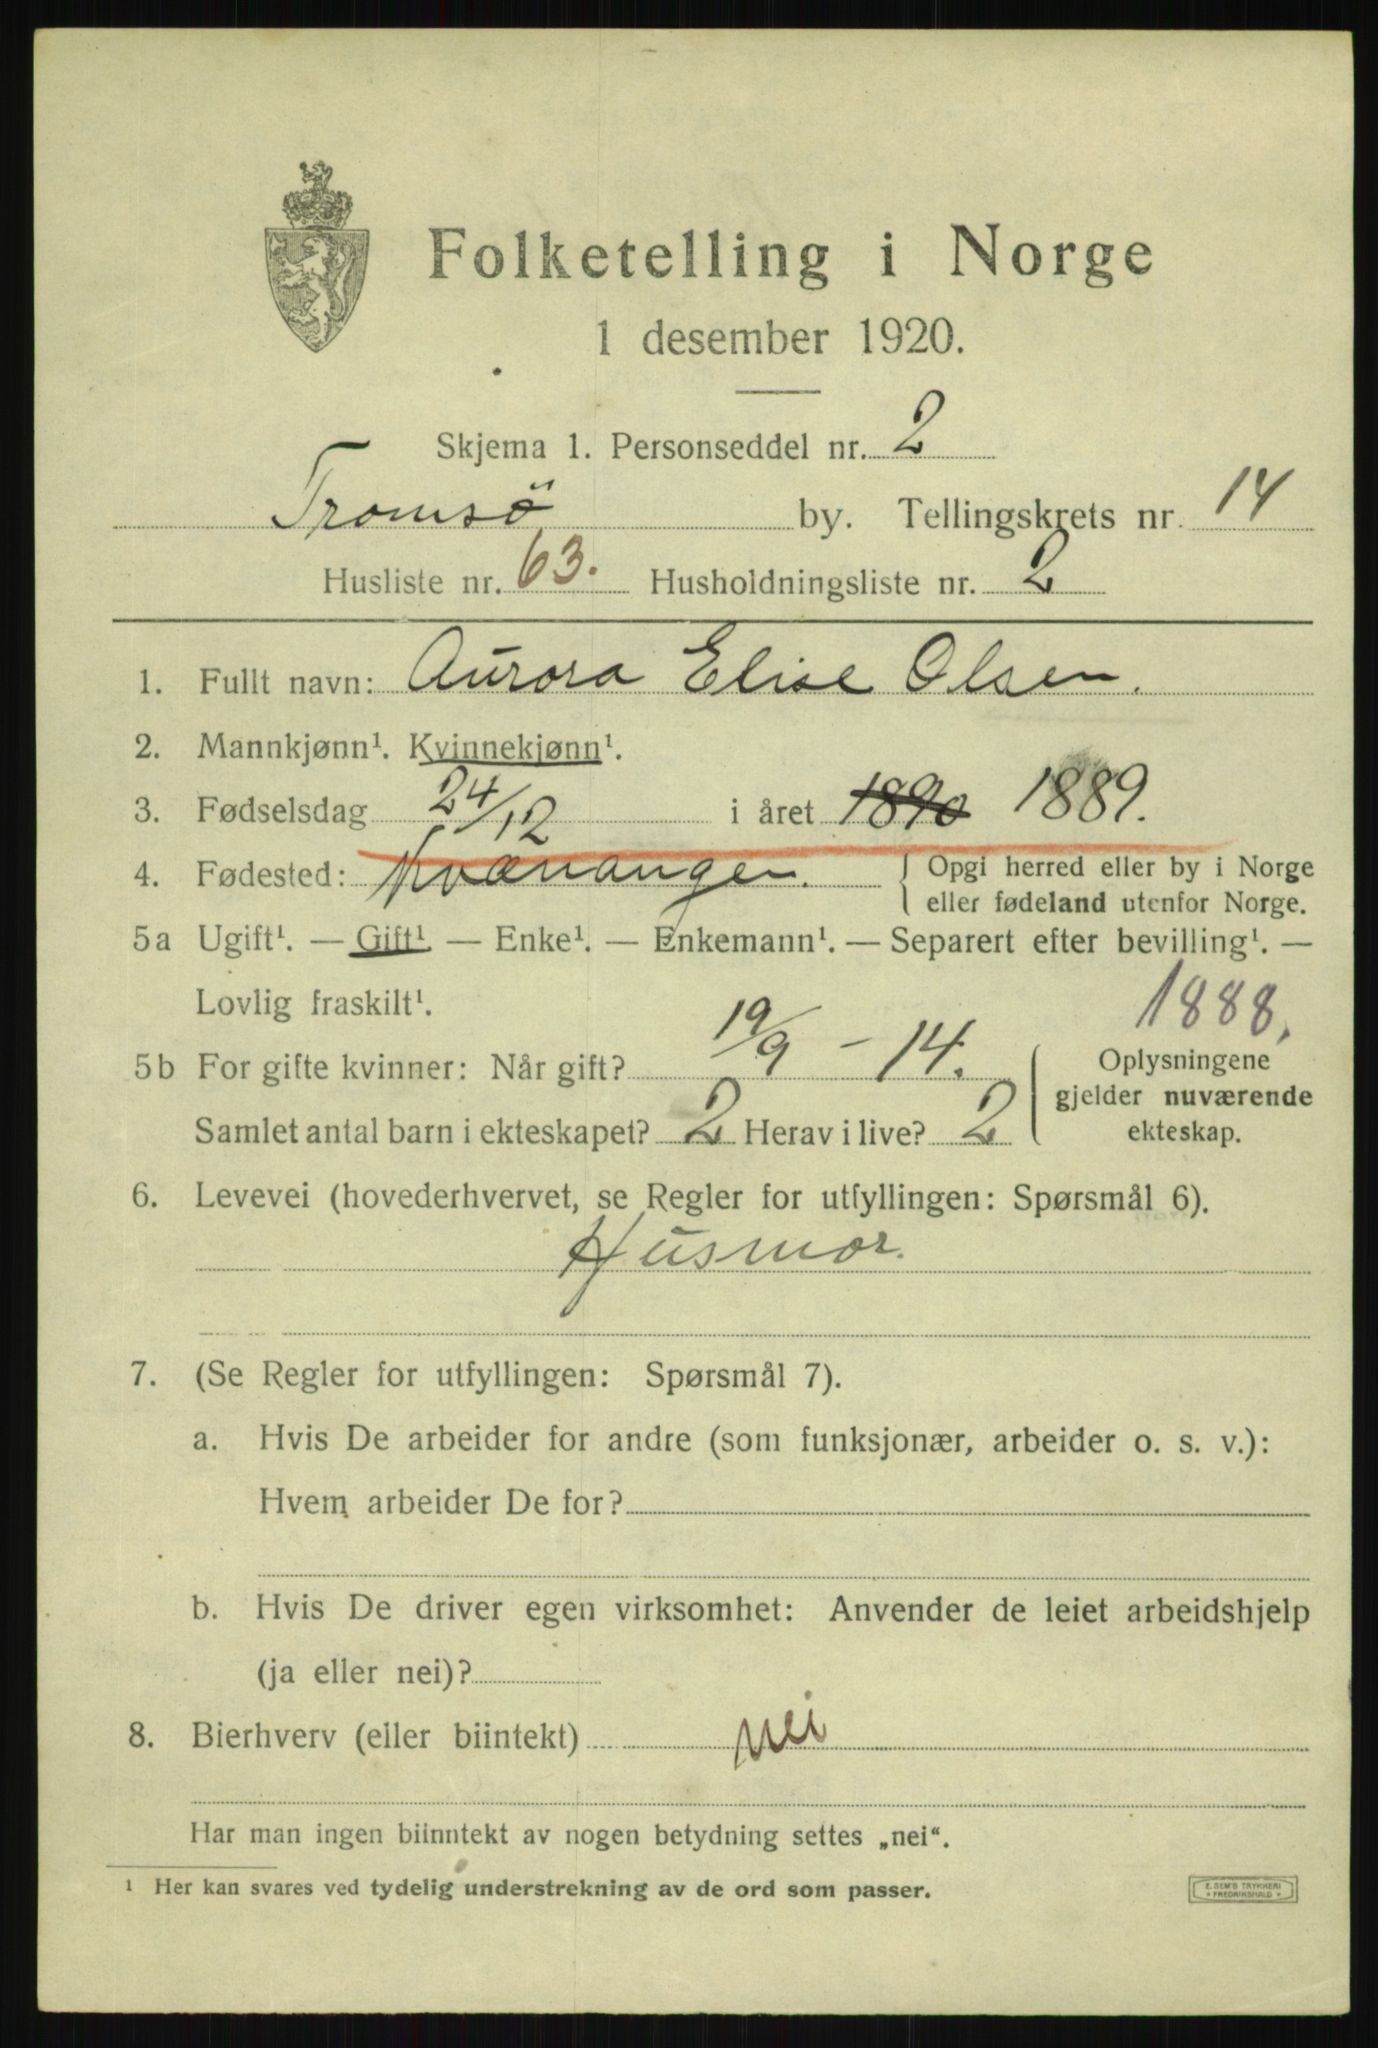 Folketelling i Norge
1 desember 1920.
Skjema 1. Personseddel nr. 2
Tromsö by. Tellingskrets nr. 14
Husliste nr. 63. Husholdningsliste nr. 2
1. Fullt navn: Aurora Elise Olsen.
2. Mannkjønn¹. Kvinnekjønn¹.
3. Fødselsdag 24/12 i året 1890 1889.
4. Fødested: Kvænangen. { Opgi herred eller by i Norge
eller fødeland utenfor Norge.
5a Ugift¹. — Gift¹ — Enke¹. — Enkemann¹. — Separert efter bevilling¹. —
Lovlig fraskilt¹. 1888.
5b For gifte kvinner: Når gift? 19/9 – 14. Oplysningene
gjelder nuværende
Samlet antal barn i ekteskapet? 2 Herav i live? 2 ekteskap.
6. Levevei (hovederhvervet, se Regler for utfyllingen: Spørsmål 6).
Husmor.
7. (Se Regler for utfyllingen: Spørsmål 7).
a. Hvis De arbeider for andre (som funksjonær, arbeider o. s. v.):
Hvem arbeider De for?
b. Hvis De driver egen virksomhet: Anvender de leiet arbeidshjelp
(ja eller nei)?
8. Bierhverv (eller biintekt) nei
Har man ingen biinntekt av nogen betydning settes „nei“.
¹ Her kan svares ved tydelig understrekning av de ord som passer.
E. SEM'S TRYKKERI
FREDRIKSHALD